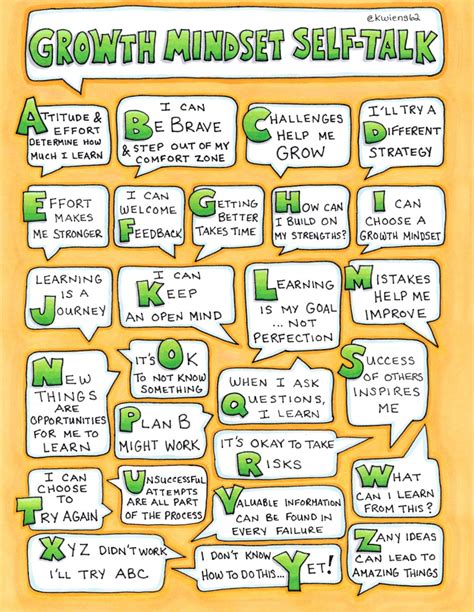 @kwiens62
GROWTH MINDSET SELF-TALK
ATTITUDE &
EFFORT
DETERMINE HOW
MUCH I LEARN
I CAN
BE BRAVE
& STEP OUT OF MY
COMFORT ZONE
CHALLENGES
HELP ME
GROW
I'LL TRY A
DIFFERENT
STRATEGY
EFFORT
MAKES
ME STRONGER
I CAN
WELCOME
FEEDBACK
GETTING
BETTER
TAKES TIME
HOW CAN
I BUILD ON
MY STRENGTHS?
I CAN
CHOOSE A
GROWTH MINDSET
LEARNING
IS A
JOURNEY
I CAN
KEEP
AN OPEN MIND
LEARNING
IS MY GOAL
... NOT
PERFECTION
MISTAKES
HELP ME
IMPROVE
NEW
THINGS
ARE
OPPORTUNITIES
FOR ME TO
LEARN
IT'S OK
TO NOT KNOW
SOMETHING
PLAN B
MIGHT WORK
WHEN I ASK
QUESTIONS,
I LEARN
IT'S OKAY TO TAKE
RISKS
SUCCESS
OF OTHERS
INSPIRES
ME
I CAN
CHOOSE TO
TRY AGAIN
UNSUCCESSFUL
ATTEMPTS
ARE ALL PART
OF THE PROCESS
VALUABLE INFORMATION
CAN BE FOUND IN
EVERY FAILURE
WHAT
CAN I LEARN
FROM THIS?
XYZ DIDN'T WORK
I'LL TRY ABC
I DON'T KNOW
HOW TO DO THIS... YET!
ZANY IDEAS
CAN LEAD TO
AMAZING THINGS